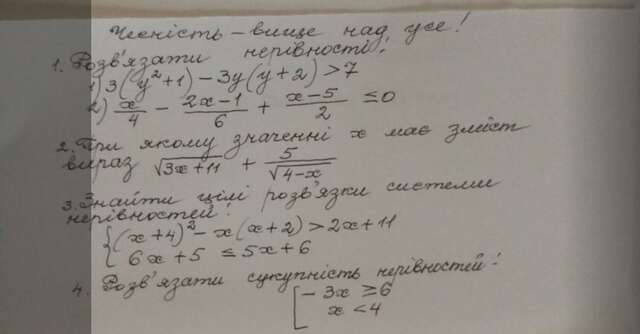 Чесність – вище над усе!
1. Розв'язати нерівності:
1) 3(y²+1) – 3y(y+2) > 7
2) x/4 – (2x–1)/6 + (x–5)/2 ≤ 0
2. При якому значенні x має зміст
вираз √(3x+11) + 5/√(4–x)
3. Знайти цілі розв'язки системи
нерівностей:
{ (x+4)² – x(x+2) > 2x+11
6x+5 ≤ 5x+6
4. Розв'язати сукупність нерівностей:
[ –3x ≥ 6
x < 4